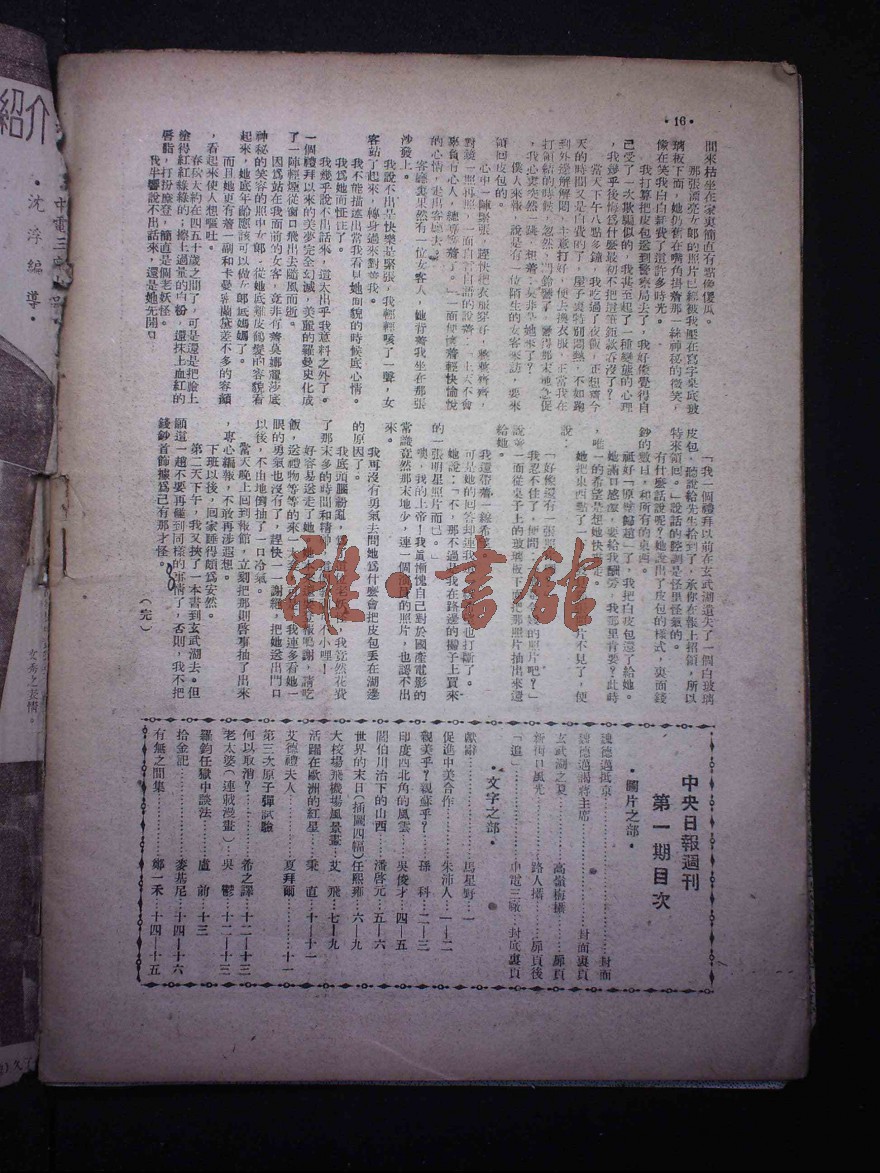 ·16·
間來枯坐在家裏簡直有點像傻瓜。
那張漂亮女郎的照片已經被我壓在寫字桌底玻
璃板下面，她仍舊在嘴角掛着那一絲神秘的微笑，
像在笑我白白耗費了這許多時光。
我打算把皮包送到警察局去了，我好像覺得自
己受了一次欺騙似的，我甚至起了一種變態的心理
，我幾乎後悔爲什麼最初不把這筆鉅款吞沒了？
當天下午八點多鐘，我吃過了夜飯，正想着今
天的時間又是白費的了，屋子裏特別悶熱，不如跑
到外邊解解悶，主意打好，便去換衣服，正當我在
打領結的時候，忽然，門鈴響了，響得那末地急促
，我心裏突然一跳，想着：莫非是她來了？
僕人來報，說是有一位陌生的女客來訪，要來
領回皮包的。
心中一陣緊張，趕快把衣服穿好，整整齊齊，
對鏡一照再照，一面自言自語的說着：「上天不會
辜負有心人，總算等着了。」一面便懷着輕快愉悅
的心情，走出客廳去。
客廳裏果然有一位女客人，她背着我坐在那張
沙發上。
我說不出是快樂是緊張，我輕輕咳了一聲，女
客站了起來，轉身過來對着我。
我不能描述出當我看見她面貌的時候底心情。
我爲她而怔住了。
我幾乎說不出話來，這太出乎我意料之外了。
一個禮拜以來的美夢完全幻滅，美麗的羅曼史化成
了一陣輕煙從窗口飛出去隨風而逝。
因爲站在我面前的女客，竟非有着莫娜麗莎底
神秘的笑容的照中女郎，從她底雞皮鶴髮的容貌看
起來，她底年齡應該可以做女郎底媽媽了。
而且她更有着一副和卡曼麥蘭黛差不多的容顏
，看起來使人想嘔吐。
春秋大約在四五十歲之間了，可是還是把臉上
塗得紅紅綠綠的，擦上過量的白粉，還抹上血紅的
唇脂，打扮摩登，簡直是個老妖怪。
我半響說不出話來，還是她先開口
「我一個禮拜以前在玄武湖遺失了一個白玻璃
皮包，聽說給先生拾到了，承你在報上招領，所以
特來領回。」說話的腔調是怪里怪氣的。
有什麼話說呢？她說出了皮包的樣式，裏面錢
鈔的數目，和所有的東西。
祗好「原璧歸趙」了。我把白皮包還了給她。
她滿口感謝，要給我酬勞，我那里肯要？此時
，唯一的希望是想她快走。
她把東西點了一
片不見了，便
說：
「好像還有一張
我忍不住了，便問
的照片吧？」
說着一面從桌子上的玻璃板下面把那照片抽出來還
給她。
我還帶着一線希
可是她的回答却連我
也打斷了。
她說：「不，那不過是我在路邊的攤子上買來
的一張明星照片而已。」
噢，我的上帝！我眞慚愧自己對於國產電影的
常識竟然那末地少，連一個
的照片，也認不出
來。
我再沒有勇氣去問她爲什麼會把皮包丟在湖邊
的原因了。
我底頭腦紛亂，
我竟然花費
了那末多的時間和精神，
不小哩！
好容易送走了她，她
登報鳴謝，請吃
飯，送禮物等等的來一大套
我連多看她一
眼的勇氣也沒有了，趕快一一謝絕，把她送出門口
以後，不由地倒抽了一口冷氣。
當天晚上回到報館，立刻把那則啓事抽了出來
，專心編報，不敢再涉遐想。
下班以後，回家睡得頗爲安然。
第二天下午，我又挾了一本書到玄武湖去。但
願這一趟不要再碰到同樣的事情了，否則，我不把
錢鈔首飾據爲己有那才怪。
（完）
中央日報週刊
第一期目次
·圖片之部·
魏德邁抵京……封面
魏德邁謁蔣主席……封面裏頁
玄武湖之夏……高嶺梅攝……扉頁
新街口風光……路人攝……扉頁後
「追」……中電三廠……封底裏頁
·文字之部·
獻辭……馬星野……一
促進中美合作……朱沛人……一—二
親美乎？親蘇乎？……孫　科……二—三
印度西北角的風雲……吳俊才……四—五
閻伯川治下的山西……潘啓元……五—六
世界的末日（插圖四幅）任熙雍……六—九
大校場飛機場風景畫……艾　飛……七—九
活躍在歐洲的紅星……秉　直……十—十一
艾德禮夫人……夏拜爾……十一
第三次原子彈試驗
何以取消？……希之譯……十二—十三
老太婆（連載漫畫）……吳　鬱……十二—十三
羅鈞任獄中談法……盧　前……十三
拾金記……麥基尼……十四—十六
有無之間集……鄒一禾……十四—十五
紹介
·沈浮編導·
中電三廠
雜·書館